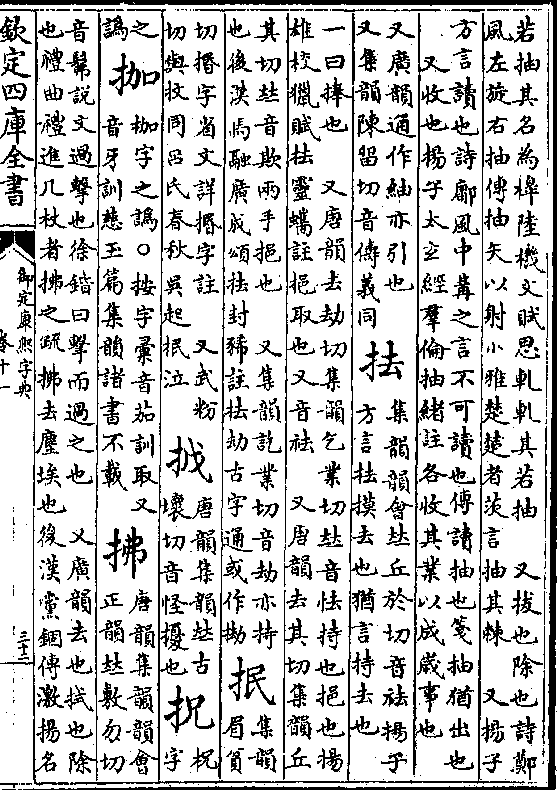 若抽其名為槔陸機文賦思軋軋其若抽　又拔也除也詩鄭
風左旋右抽傳抽矢以射小雅楚楚者茨言抽其棘　又揚子
方言讀也詩鄘風中冓之言不可讀也傳讀抽也箋抽猶出也
又收也揚子太玄經羣倫抽緒註各收其業以成歲事也
又廣韻通作紬亦引也
又集韻陳留切音儔義同
抾
集韻韻會𠀤丘於切音祛揚子
方言抾摸去也猶言持去也
一曰捧也　又唐韻去劫切集韻乞業切𠀤音怯持也挹也揚
雄校獵賦抾靈蠵註挹取也又音祛　又唐韻去其切集韻丘
其切𠀤音欺兩手挹也　又集韻訖業切音劫亦持
也後漢馬融廣成頌抾封狶註抾劫古字通或作㔘
抿
集韻
眉貧
切捪字省文詳捪字註　又武粉
切與抆同呂氏春秋吳起抿泣
㧕
唐韻集韻𠀤古
壞切音怪擾也
柷
字
之
譌
拁
㧝字之譌○按字彙音茄訓取又
音牙訓惹玉篇集韻諸書不載
拂
唐韻集韻韻會
正韻𠀤敷勿切
音髴說文過擊也徐鍇曰擊而過之也　又廣韻去也拭也除
也禮曲禮進几杖者拂之疏拂去塵埃也後漢黨錮傳激揚名
欽定四庫全書
御定康熙字典
卷十一
三十二